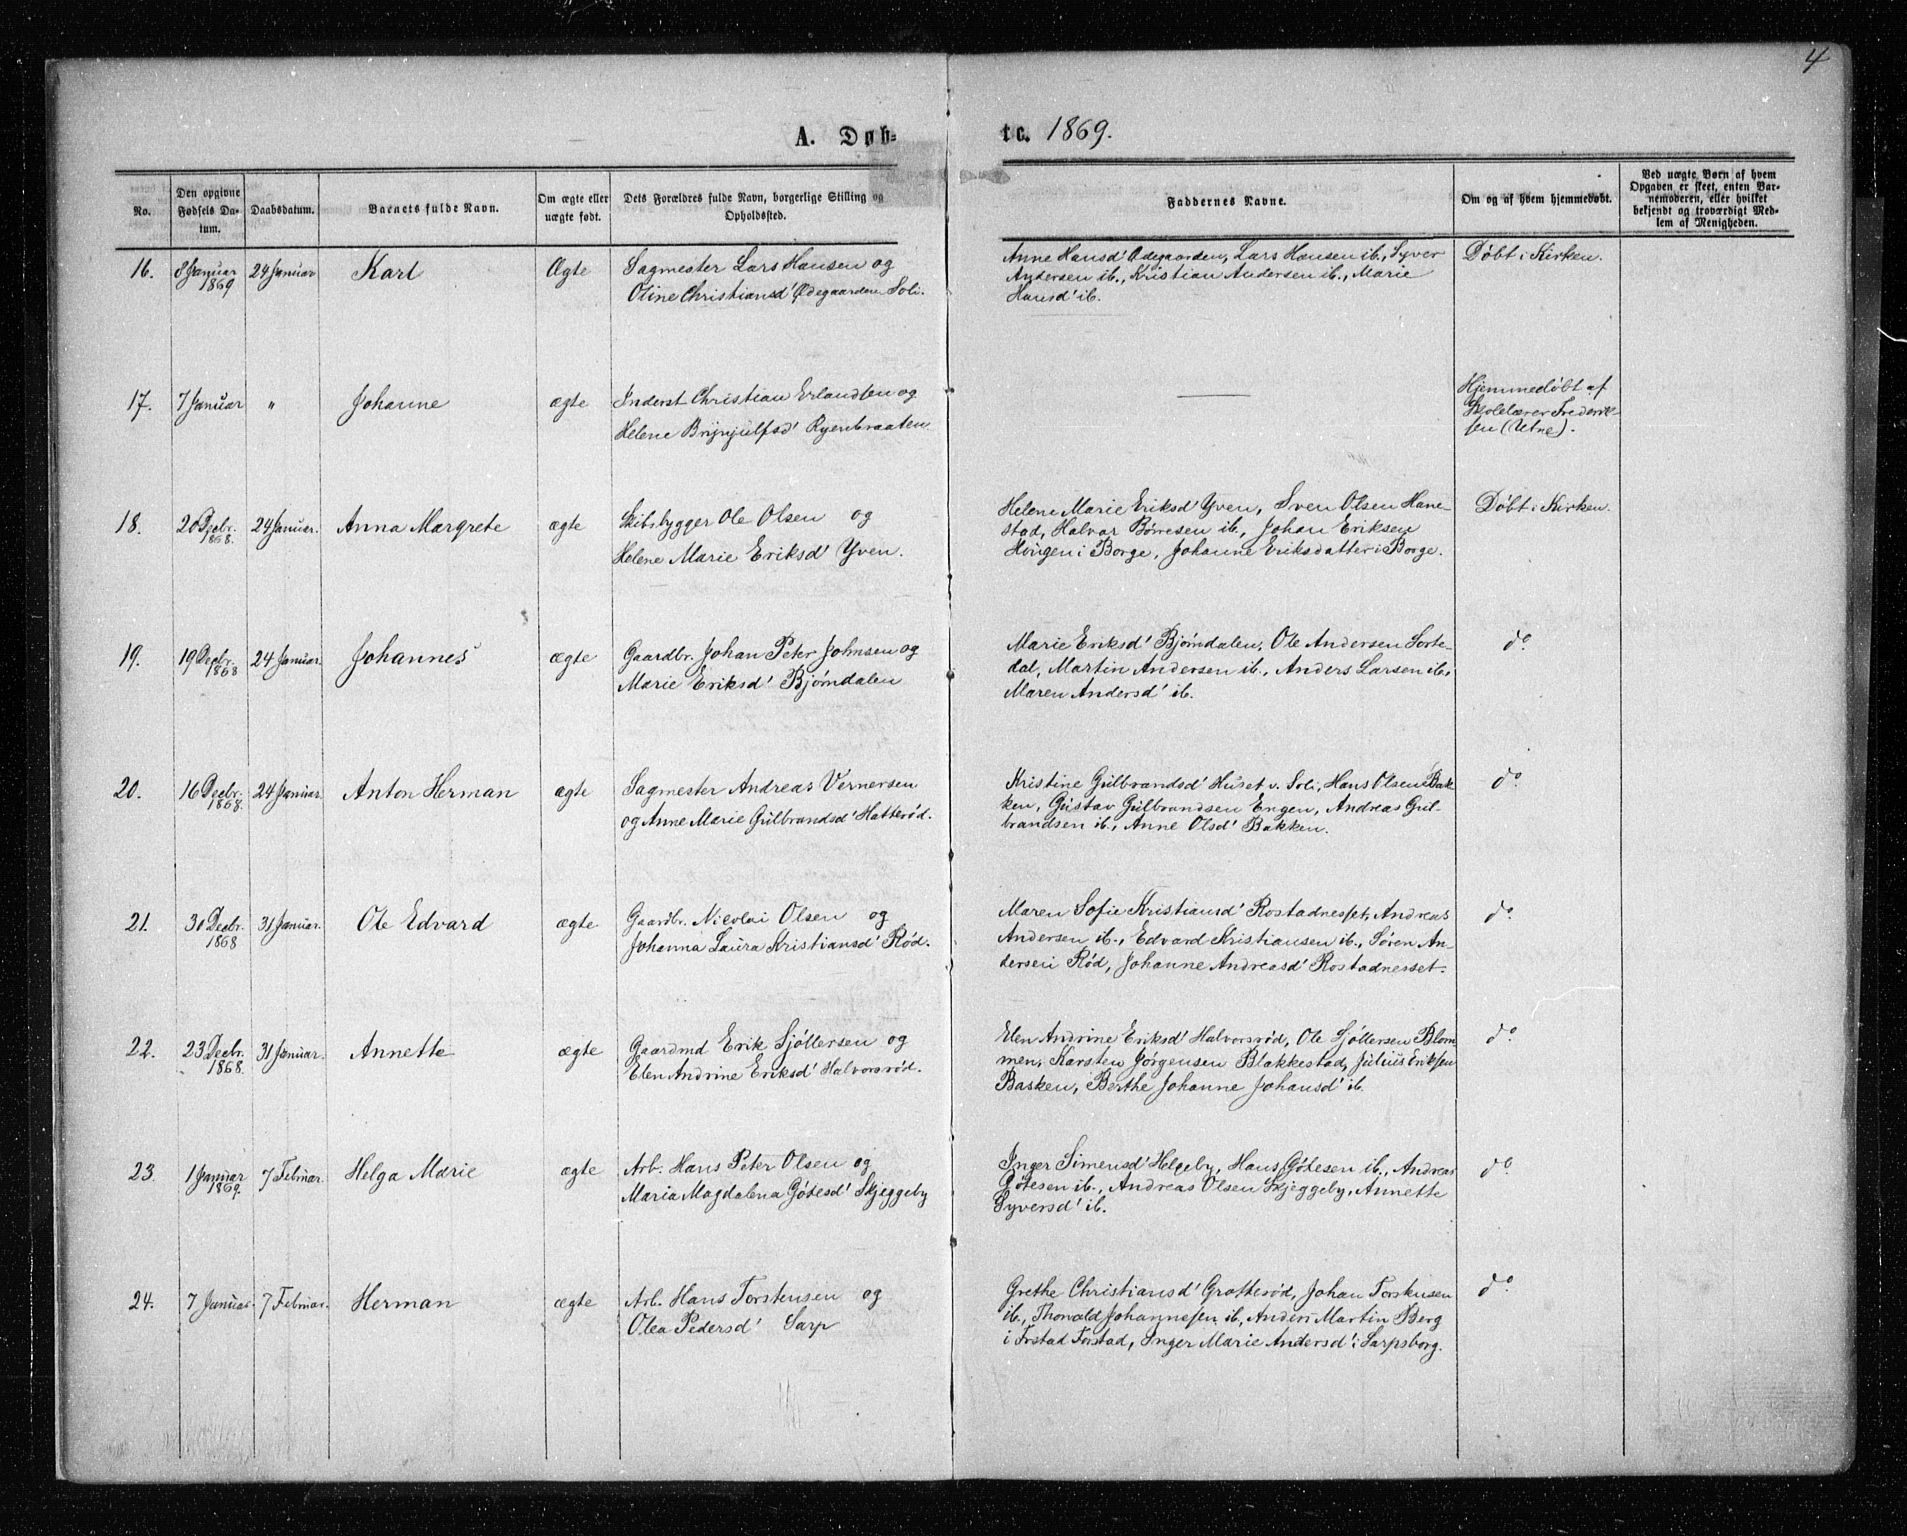 4
A. Døb=
te. 1869.
No.
Den opgivne
Fødsels Da-
tum.
Daabsdatum.
Barnets fulde Navn.
Om ægte eller
uægte født.
Dets Forældres fulde Navn, borgerlige Stilling og
Opholdssted.
Faddernes Navne.
Om og af hvem hjemmedøbt.
Ved uægte Børn af hvem
Opgaven er skeet, enten Bar-
nemoderen, eller hvilket
bekjendt og troværdigt Med-
lem af Menigheden.
16. 8 Januar 24 Januar Karl Ægte Sagmester Lars Hansen og
1869
Oline Christiansd' Ødegaarden Soli.
Anne Hansd' Ødegaarden, Lars Hansen ib., Syver
Andersen ib., Kristian Andersen ib., Marie
Hansd' ib.
Døbt i Kirken.
17. 7 Januar " Johanne ægte Inderst Christian Erlandsen og
Helene Brynjulfsd' Ryenbraaten.
Hjemmedøbt af
Skolelærer Frederik-
sen (Utne).
18. 20 Decbr. 24 Januar. Anna Margrete ægte Skibsbygger Ole Olsen og
1868.
Helene Marie Eriksd' Yven.
Helene Marie Eriksd' Yven, Sven Olsen Hane-
stad, Halvar Børresen ib., Johan Eriksen
Haugen i Borge, Johanne Eriksdatter i Borge.
Døbt i Kirken.
19. 19 Decbr. 24 Januar. Johannes ægte Gaardbr. Johan Peter Johnsen og
1868
Marie Eriksd' Bjørndalen
Marie Eriksd' Bjørndalen, Ole Andersen Sorte-
dal, Martin Andersen ib., Anders Larsen ib.,
Maren Andersd' ib.
do
20. 16 Decbr. 24 Januar. Anton Herman ægte Sagmester Andreas Vernersen
1868.
og Anne Marie Gulbrandsd' Hatterød.
Kristine Gulbrandsd' Huset v. Soli, Hans Olsen Bak-
ken, Gustav Gulbrandsen Engen, Andreas Gul-
brandsen ib., Anne Olsd' Bakken.
do
21. 30 Decbr. 31 Januar. Ole Edvard ægte Gaardbr. Nicolai Olsen og
1868
Johanna Laura Kristiansd' Rød.
Maren Sofie Kristiansd' Rostadnesset, Andreas
Andersen ib., Edvard Kristiansen ib., Søren An-
dersen Rød, Johanne Andreasd' Rostadnesset.
do
22. 23 Decbr. 31 Januar. Annette ægte Gaardmd Erik Sjøllersen og
1868.
Elen Andrine Eriksd' Halvorsrød.
Elen Andrine Eriksd' Halvorsrød, Ole Sjøllersen Blom-
men, Karsten Jørgensen Blakkestad, Julius Eriksen
Basken, Berthe Johanne Johansd' ib.
do
23. 1 Januar 7 Februar Helga Marie ægte Arb. Hans Peter Olsen og
1869.
Maria Magdalena Gøtesd' Skjeggeby
Inger Simensd' Helgeby, Hans Gøtesen ib., Andreas
Gøtesen ib., Andreas Olsen Skjeggeby, Annette
Syversd' ib.
do
24. 7 Januar. 7 Februar. Herman ægte Arb. Hans Torstensen og
Olea Pedersd' Sarp
Grethe Christiansd' Grotterød, Johan Torstensen
ib., Thorvald Johannesen ib., Anders Martin Berg
i Frstad Torstad, Inger Marie Andersd' i Sarpsborg.
do